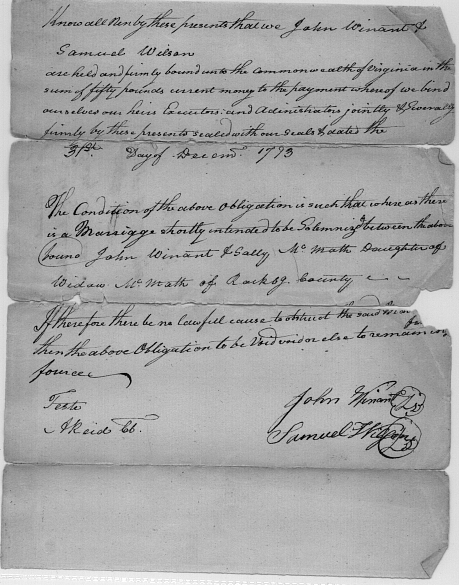 Know all Men by these presents that we John Winant &
Samuel Wilson
are held and firmly bound unto the commonwealth of Virginia in the
sum of fifty pounds current money to the payment whereof we bind
ourselves our heirs Executors and Adminstrators jointly & Severally
firmly by these presents sealed with our seals & dated the
31st. Day of Decemr. 1793
The Condition of the above Obligation is such that where as there
is a Marriage shortly intended to be Solemnized between the above
bound John Winant & Sally McMath Daughter of
Widow McMath of Rockbg. County
If therefore there be no lawfull cause to obstruct the said
then the above Obligation to be Void or else to remain in
fource
Teste
AReid
John Winant
Samuel